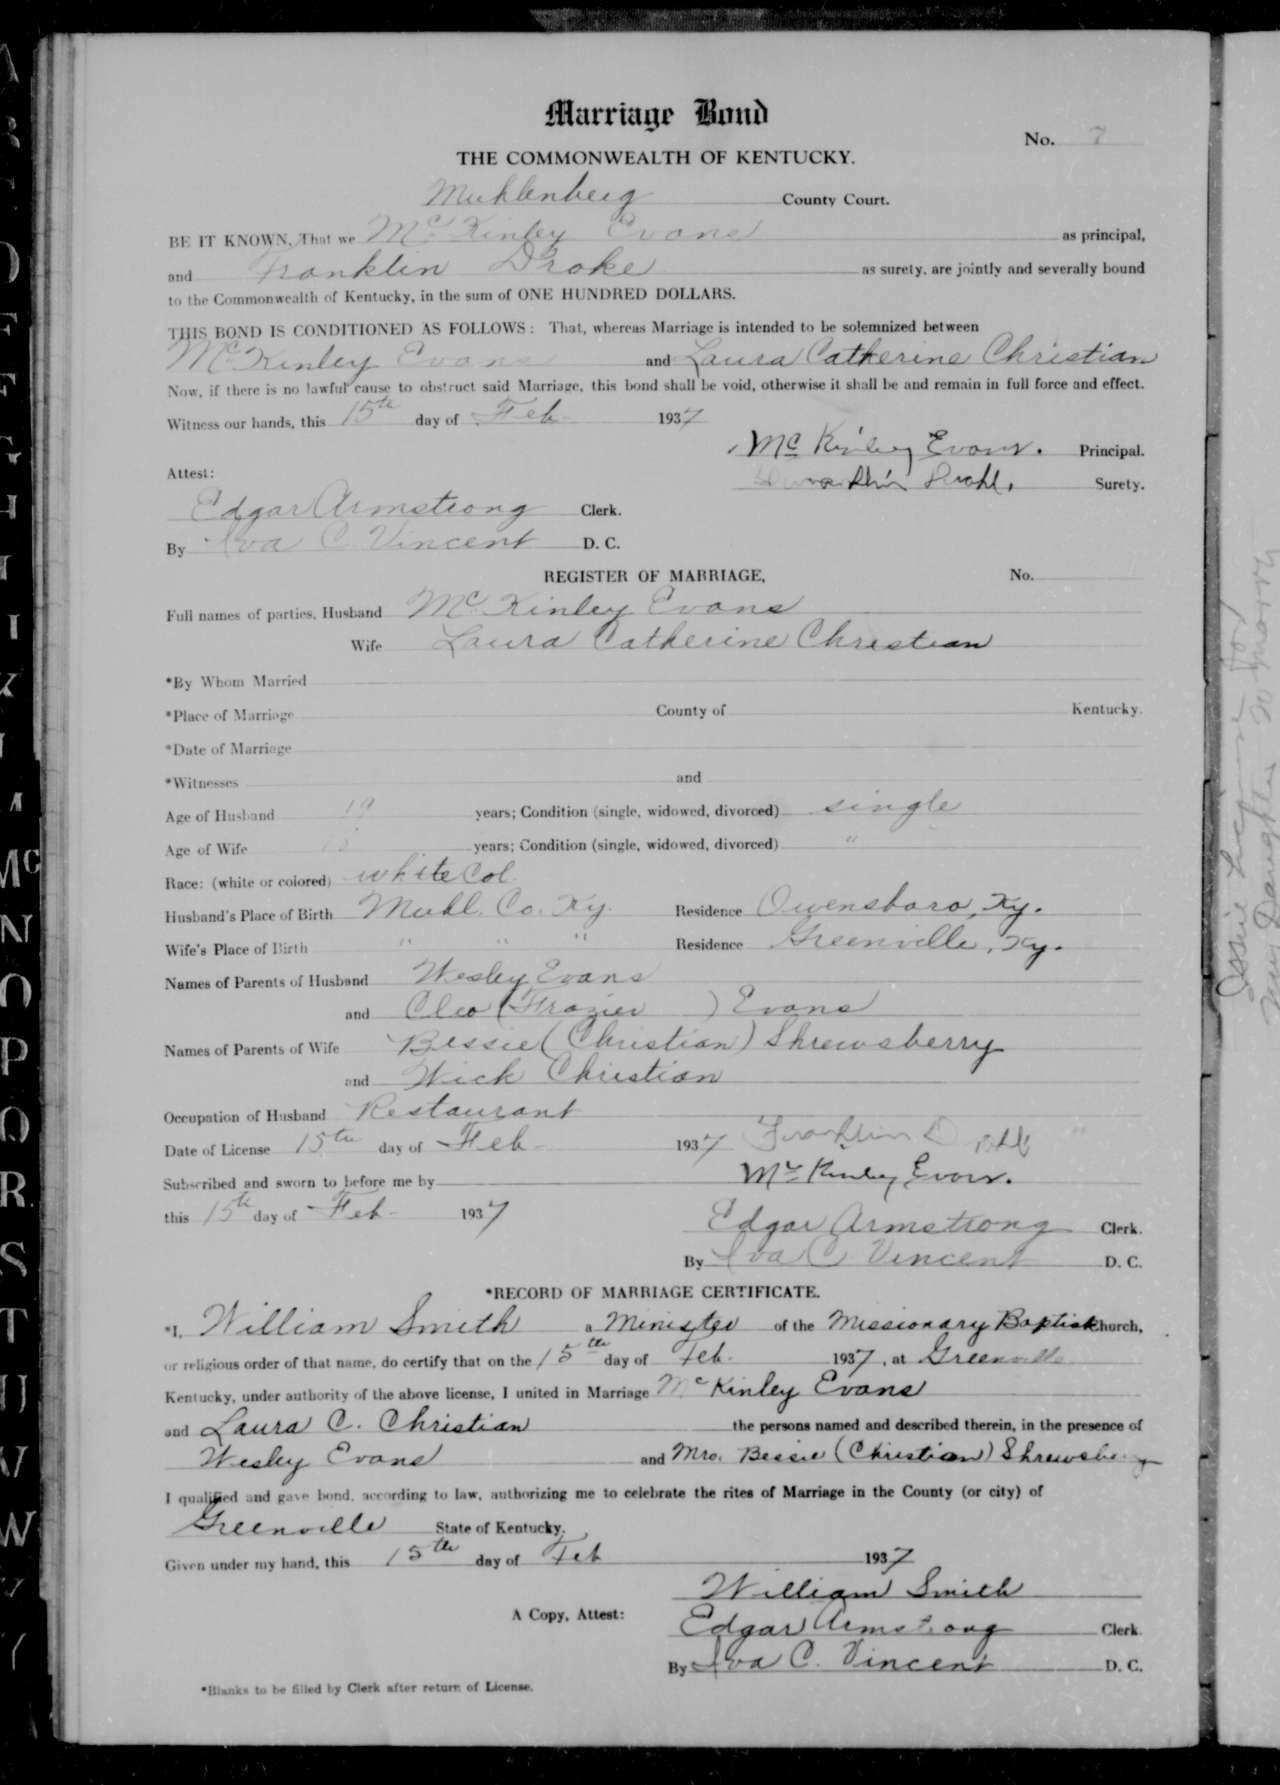 Marriage Bond
No. 7
THE COMMONWEALTH OF KENTUCKY.
Muhlenberg County Court.
BE IT KNOWN, That we McKinley Evans as principal,
and Franklin Drake as surety, are jointly and severally bound
to the Commonwealth of Kentucky, in the sum of ONE HUNDRED DOLLARS.
THIS BOND IS CONDITIONED AS FOLLOWS: That, whereas Marriage is intended to be solemnized between
McKinley Evans and Laura Catherine Christian
Now, if there is no lawful cause to obstruct said Marriage, this bond shall be void, otherwise it shall be and remain in full force and effect.
Witness our hands, this 15th day of Feb 1937
McKinley Evans. Principal.
Attest:
Surety.
Edgar Armstrong Clerk.
By Iva C. Vincent D. C.
REGISTER OF MARRIAGE, No.
Full names of parties, Husband McKinley Evans
Wife Laura Catherine Christian
*By Whom Married
*Place of Marriage County of Kentucky.
*Date of Marriage
*Witnesses and
Age of Husband 19 years; Condition (single, widowed, divorced) single
Age of Wife years; Condition (single, widowed, divorced) "
Race: (white or colored) white Col.
Husband's Place of Birth Muhl. Co. Ky. Residence Owensboro, Ky.
Wife's Place of Birth " " " Residence Greenville, Ky.
Names of Parents of Husband Wesley Evans
and Cleo (Frazier ) Evans
Names of Parents of Wife Bessie (Christian) Shrewsberry
and Wick Christian
Occupation of Husband Restaurant
Date of License 15th day of Feb - 1937 Franklin D
Subscribed and sworn to before me by McKinley Evans.
this 15th day of Feb - 1937
Edgar Armstrong Clerk.
By Iva C Vincent D. C.
*RECORD OF MARRIAGE CERTIFICATE.
*I, William Smith a Minister of the Missionary Baptist Church,
or religious order of that name, do certify that on the 15th day of Feb. 1937, at Greenville
Kentucky, under authority of the above license, I united in Marriage McKinley Evans
and Laura C. Christian the persons named and described therein, in the presence of
Wesley Evans and Mrs. Bessie (Christian) Shrewsberry
I qualified and gave bond, according to law, authorizing me to celebrate the rites of Marriage in the County (or city) of
Greenville State of Kentucky.
Given under my hand, this 15th day of Feb 1937
William Smith
A Copy, Attest: Edgar Armstrong Clerk
By Iva C. Vincent D. C.
*Blanks to be filled by Clerk after return of License.